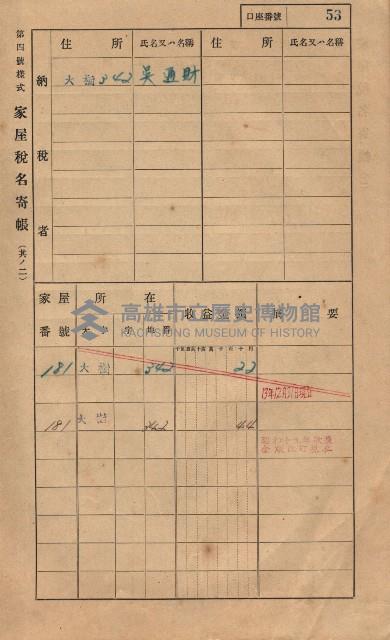 口座番號 53
第四號樣式 家屋稅名寄帳（其ノ二）
住所 氏名又ハ名稱 住所 氏名又ハ名稱
納稅者
大樹 342 吳通財
家屋番號 所在 大字 字 地番 收益 摘要
高雄市立歷史博物館
KAOHSIUNG MUSEUM OF HISTORY
181 大樹 342 22
181 大樹 342 44